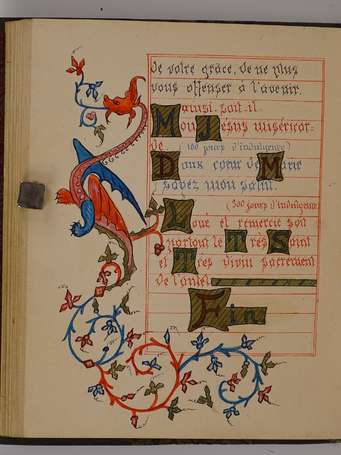 de votre grâce, de ne plus
vous offenser à l'avenir.
ainsi soit-il.
Mon Jésus miséricor=
de (100 jours d'indulgence)
Doux cœur de Marie
soyez mon salut.
(300 jours d'indulgence)
Loué et remercié soit
partout le Très Saint
et Très divin sacrement
de l'autel
Fin